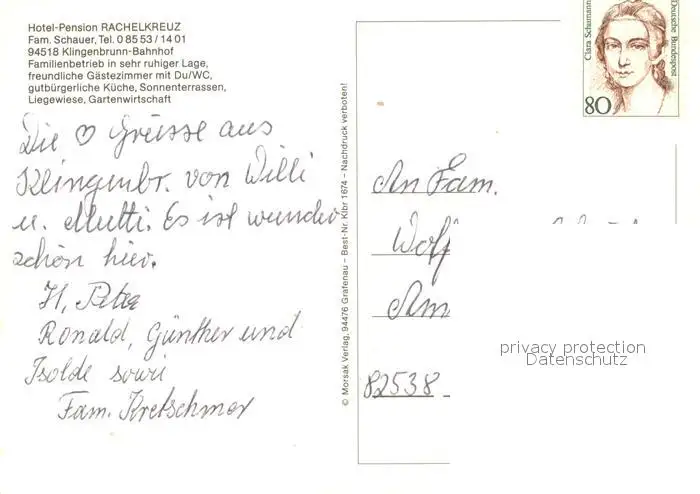 Hotel-Pension RACHELKREUZ
Fam. Schauer, Tel. 0 85 53 / 14 01
94518 Klingenbrunn-Bahnhof
Familienbetrieb in sehr ruhiger Lage,
freundliche Gästezimmer mit Du/WC,
gutbürgerliche Küche, Sonnenterrassen,
Liegewiese, Gartenwirtschaft
Die ♡ Grüsse aus
Klingenbr. von Willi
u. Mutti. Es ist wunder
schön hier.
Ronald, Günther und
Isolde sowie
Fam. Kretschmer
© Morsak Verlag, 94476 Grafenau – Best-Nr. Klbr 1674 – Nachdruck verboten!
Clara Schumann
Deutsche Bundespost
80
An Fam.
Wolf
Am
82538
privacy protection
Datenschutz